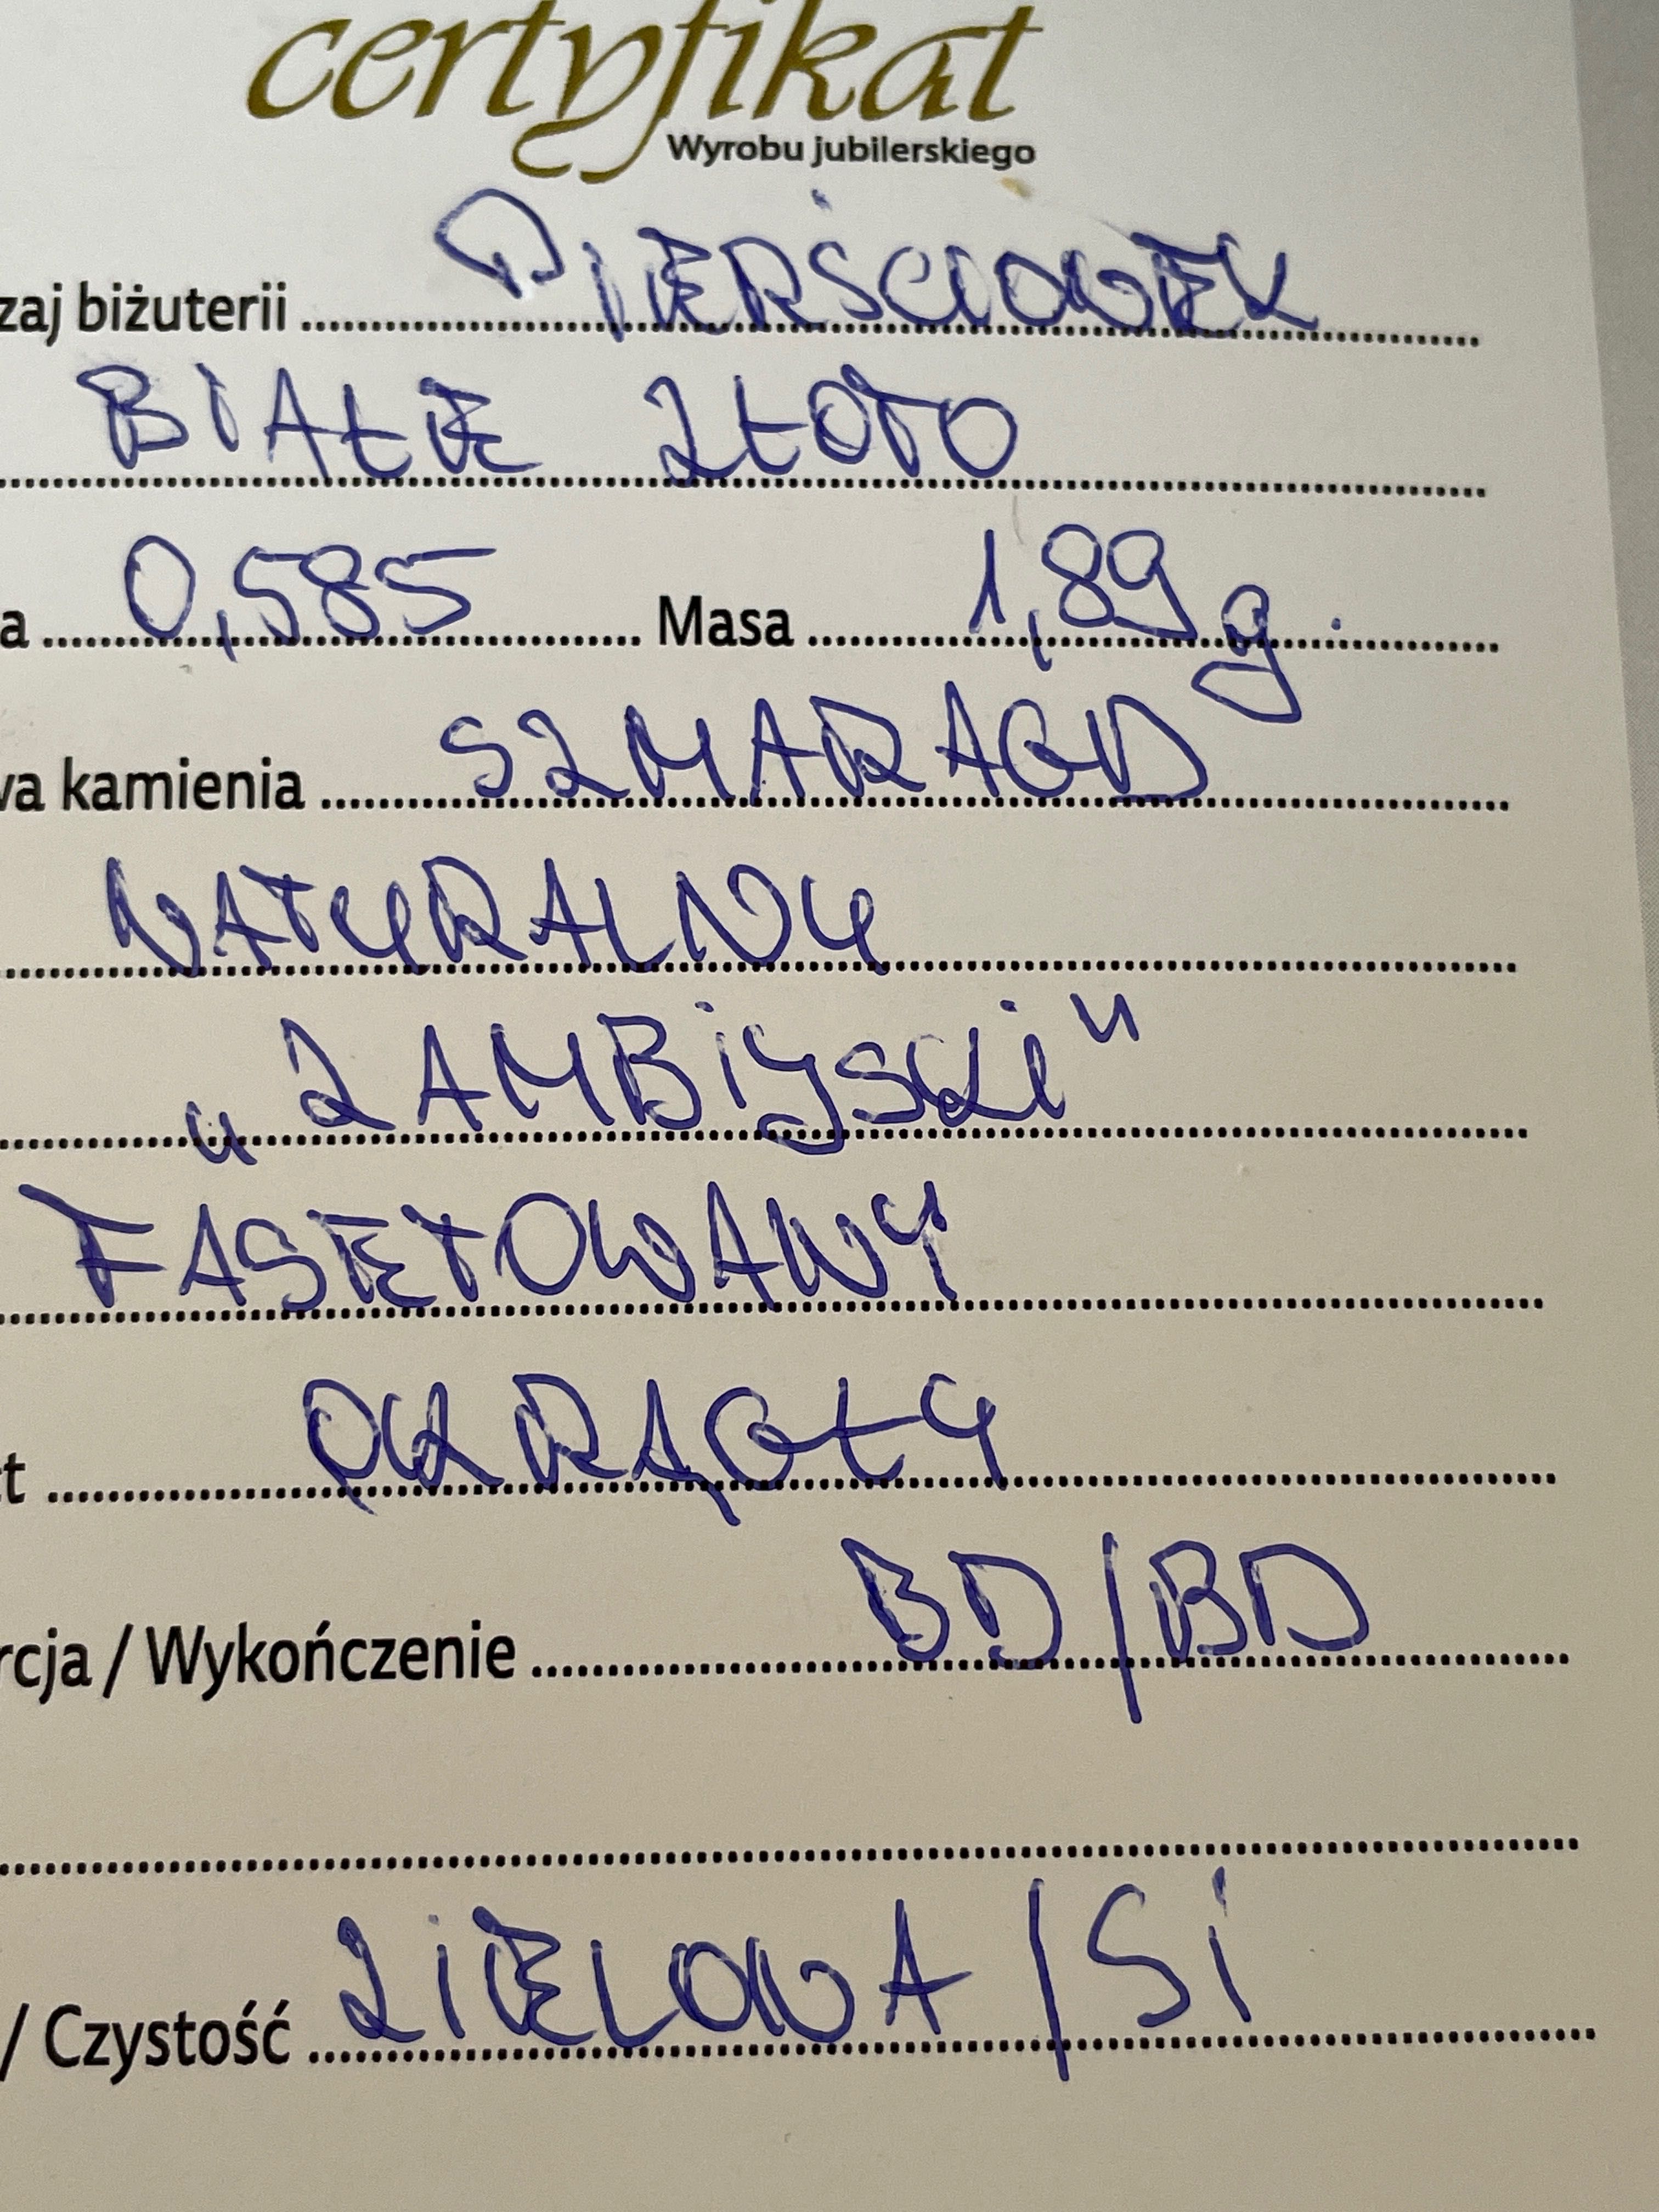 certyfikat
Wyrobu jubilerskiego
zaj biżuterii PIERŚCIONEK
BIAŁE ZŁOTO
a 0,585 Masa 1,89 g.
wa kamienia SZMARAGD
NATURALNY
„ZAMBIJSKI"
FASETOWANY
t OKRĄGŁY
rcja / Wykończenie BD/BD
/ Czystość ZIELONA / Si